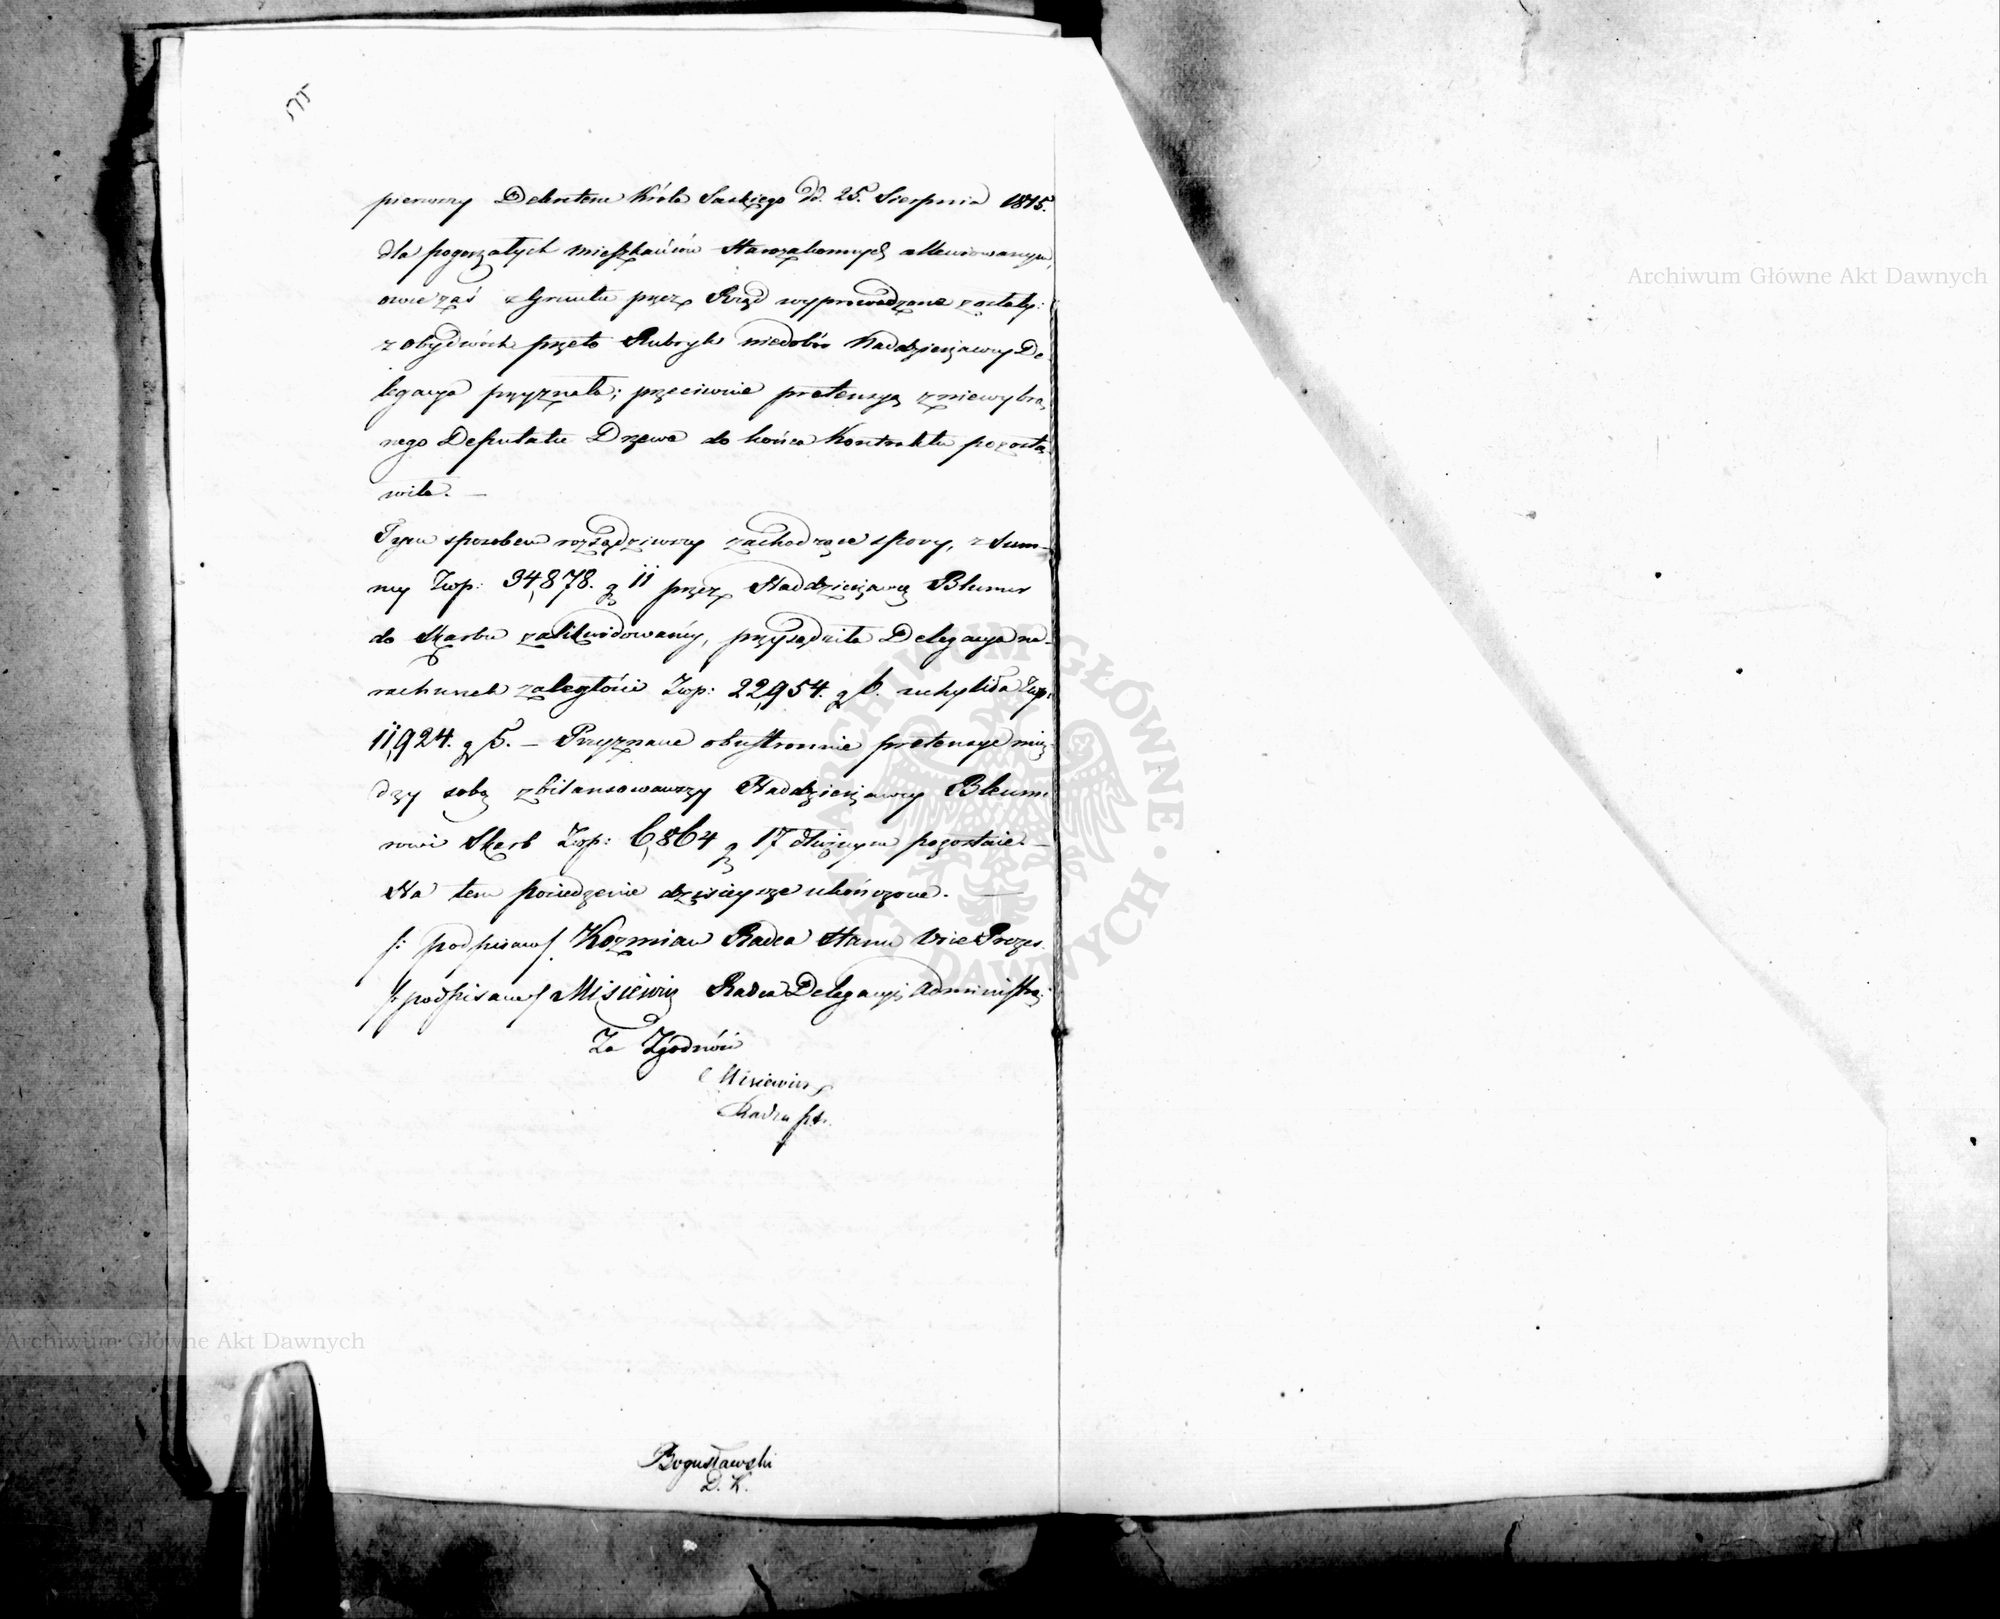 175
pierwszy Dekretem Króla Saskiego dd. 25. Sierpnia 1815.
dla pogorzałych mieszkańców Starozakonnych allewiowanym,
owe zaś z Gruntu przez Rząd wyprowadzone zostały:
z obydwóch przeto Rubryk niedobór Naddzierżawcy De-
legacya przyznała; przeciwnie pretensyą z niewybra-
nego Deputatu Drzewa do końca Kontraktu pozosta-
wiła. —
Tym sposobem rozsądziwszy zachodzące spory, z Sum-
my Złp: 34,878. g 11 przez Naddzierżawcę Blumer
do Skarbu zalikwidowaney, przysądziła Delegacya na
rachunek zaległości Złp: 22,954. g 6. uchyliła Złp:
11,924. g 5. — Przyznane obustronnie pretensye mię-
dzy sobą zbilansowawszy Naddzierżawcy Blume-
rowi Skarb Złp: 6,864 g 17 dłużnym pozostaie. —
Na tem posiedzenie dzisieysze ukończone. —
/: podpisano/ Kozmian Radca Stanu Vice Prezes.
/: podpisano/ Misiewicz Radca Delegacyi Administra:
Za Zgodność
Misiewicz
Radca
Bogusławski
D. K.
Archiwum Główne Akt Dawnych
Archiwum Główne Akt Dawnych
ARCHIWUM GŁÓWNE AKT DAWNYCH